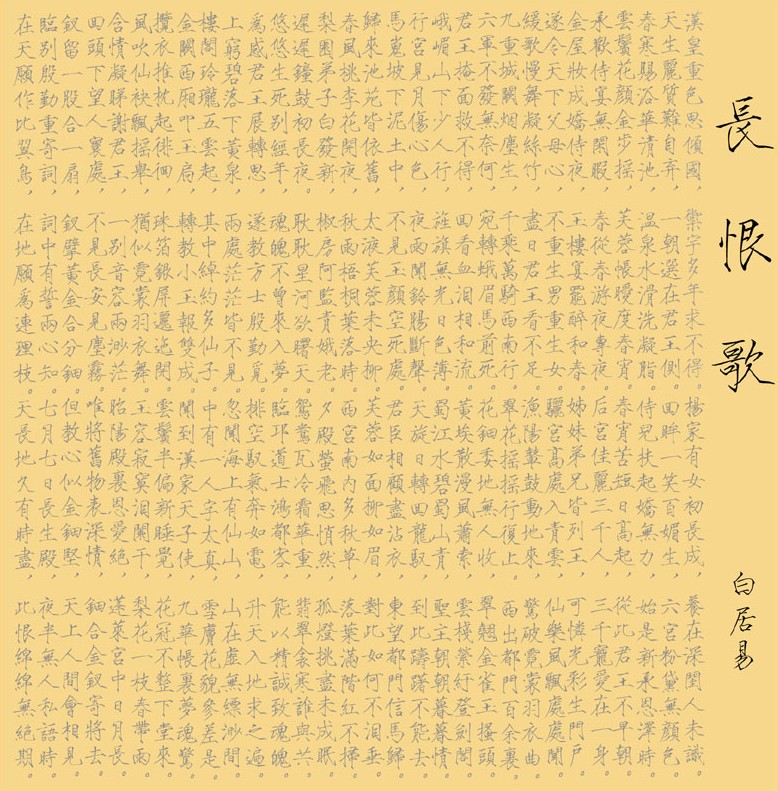 長恨歌
白居易
漢皇重色思傾國，禦宇多年求不得。楊家有女初長成，養在深閨人未識。
天生麗質難自弃，一朝選在君王側。回眸一笑百媚生，六宮粉黛無顏色。
春寒賜浴華清池，溫泉水滑洗凝脂。侍兒扶起嬌無力，始是新承恩澤時。
雲鬢花顏金步搖，芙蓉帳暖度春宵。春宵苦短日高起，從此君王不早朝。
承歡侍宴無閑暇，春從春游夜專夜。后宮佳麗三千人，三千寵愛在一身。
金屋妝成嬌侍夜，玉樓宴罷醉和春。姊妹弟兄皆列土，可憐光彩生門戶。
遂令天下父母心，不重生男重生女。驪宮高處入青雲，仙樂風飄處處聞。
緩歌慢舞凝絲竹，盡日君王看不足。漁陽鼙鼓動地來，驚破霓裳羽衣曲。
九重城闕煙塵生，千乘萬騎西南行。翠花搖搖行復上，西出都門百余裏。
六軍不發無奈何，宛轉蛾眉馬前死。花鈿委地無人收，翠翹金雀玉搔頭。
君王掩面救不得，回看血淚相和流。黃埃散漫風蕭索，雲棧縈紆登劍閣。
峨嵋山下少人行，旌旗無光日色薄。蜀江水碧蜀山青，聖主朝朝暮暮情。
行宮見月傷心色，夜雨聞鈴腸斷聲。天旋日轉回龍馭，到此躊躇不能去。
馬嵬坡下泥土中，不見玉顏空死處。君臣相顧盡沾衣，東望都門信馬歸。
歸來池苑皆依舊，太液芙蓉未央柳。芙蓉如面柳如眉，對此如何不淚垂。
春風桃李花開夜，秋雨梧桐葉落時。西宮南內多秋草，落葉滿階紅不掃。
梨園弟子白發新，椒房阿監青娥老。夕殿螢飛思悄然，孤燈挑盡未成眠。
遲遲鐘鼓初長夜，耿耿星河欲曙天。鴛鴦瓦冷霜華重，翡翠衾寒誰與共。
悠悠生死別經年，魂魄不曾來入夢。臨邛道士鴻都客，能以精誠致魂魄。
為感君王展轉思，遂教方士殷勤覓。排空馭氣奔如電，升天入地求之遍。
上窮碧落下黃泉，兩處茫茫皆不見。忽聞海上有仙山，山在虛無縹渺間。
樓閣玲瓏五雲起，其中綽約多仙子。中有一人字太真，雪膚花貌參差是。
金闕西廂叩玉扃，轉教小玉報雙成。聞到漢家天子使，九華帳裏夢魂驚。
攬衣推枕起徘徊，珠箔銀屏邐迤開。雲鬢半偏新睡覺，花冠不整下堂來。
風吹仙袂飄搖舉，猶似霓裳羽衣舞。玉容寂寞淚闌干，梨花一枝春帶雨。
含情凝睇謝君王，一別音容兩渺茫。昭陽殿裏恩愛絕，蓬萊宮中日月長。
回頭下望人寰處，不見長安見塵霧。唯將舊物表深情，鈿合金釵寄將去。
釵留一股合一扇，釵擘黃金合分鈿。但教心似金鈿堅，天上人間會相見。
臨別殷勤重寄詞，詞中有誓兩心知。七月七日長生殿，夜半無人私語時。
在天願作比翼鳥，在地願為連理枝。天長地久有時盡，此恨綿綿無絕期。